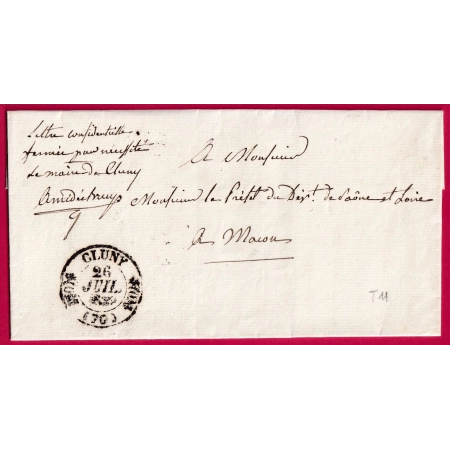 Lettre confidentielle
fermée par nécessité
Le maire de Cluny
A Monsieur
Monsieur le Préfet du Dépt. de Saône et Loire
A Macon
CLUNY
26
JUIL.
(70)
T 11